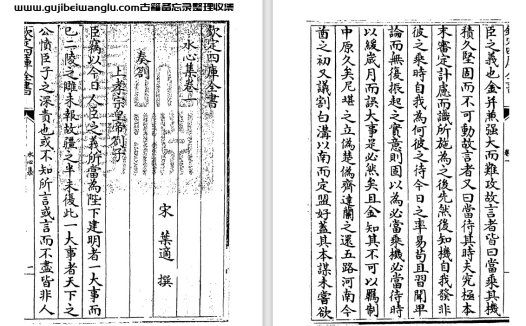 www.gujibeiwanglu.com古籍备忘录整理收集
欽定四庫全書
水心集卷一
宋 葉適 撰
奏劄
上孝宗皇帝劄子
臣竊以今日人臣之義所當為陛下建明者一大事而
已二陵之讎未報故疆之半未復此一大事者天下之
公憤臣子之深責也或不知所言或言而不盡皆非人
欽定四庫全書
水心集
臣之義也金并兼强大而難攻故言者皆曰當乘其機
積久堅固而不可動故言者又曰當待其時夫究極本
末審定計慮而識所施為之後先然後知機自我發非
彼之乘時自我為何彼之待今日之率易苟且習聞卑
論而無復振起之實意則固以為必當乘機必當待時
以緩歲月而誤大事是必然矣且金知其不可以羈制
中原久矣尼堪之立偽楚偽齊達蘭之還五路河南今
酋之初又議割白溝以南而定盟好蓋其本謀未嘗欲